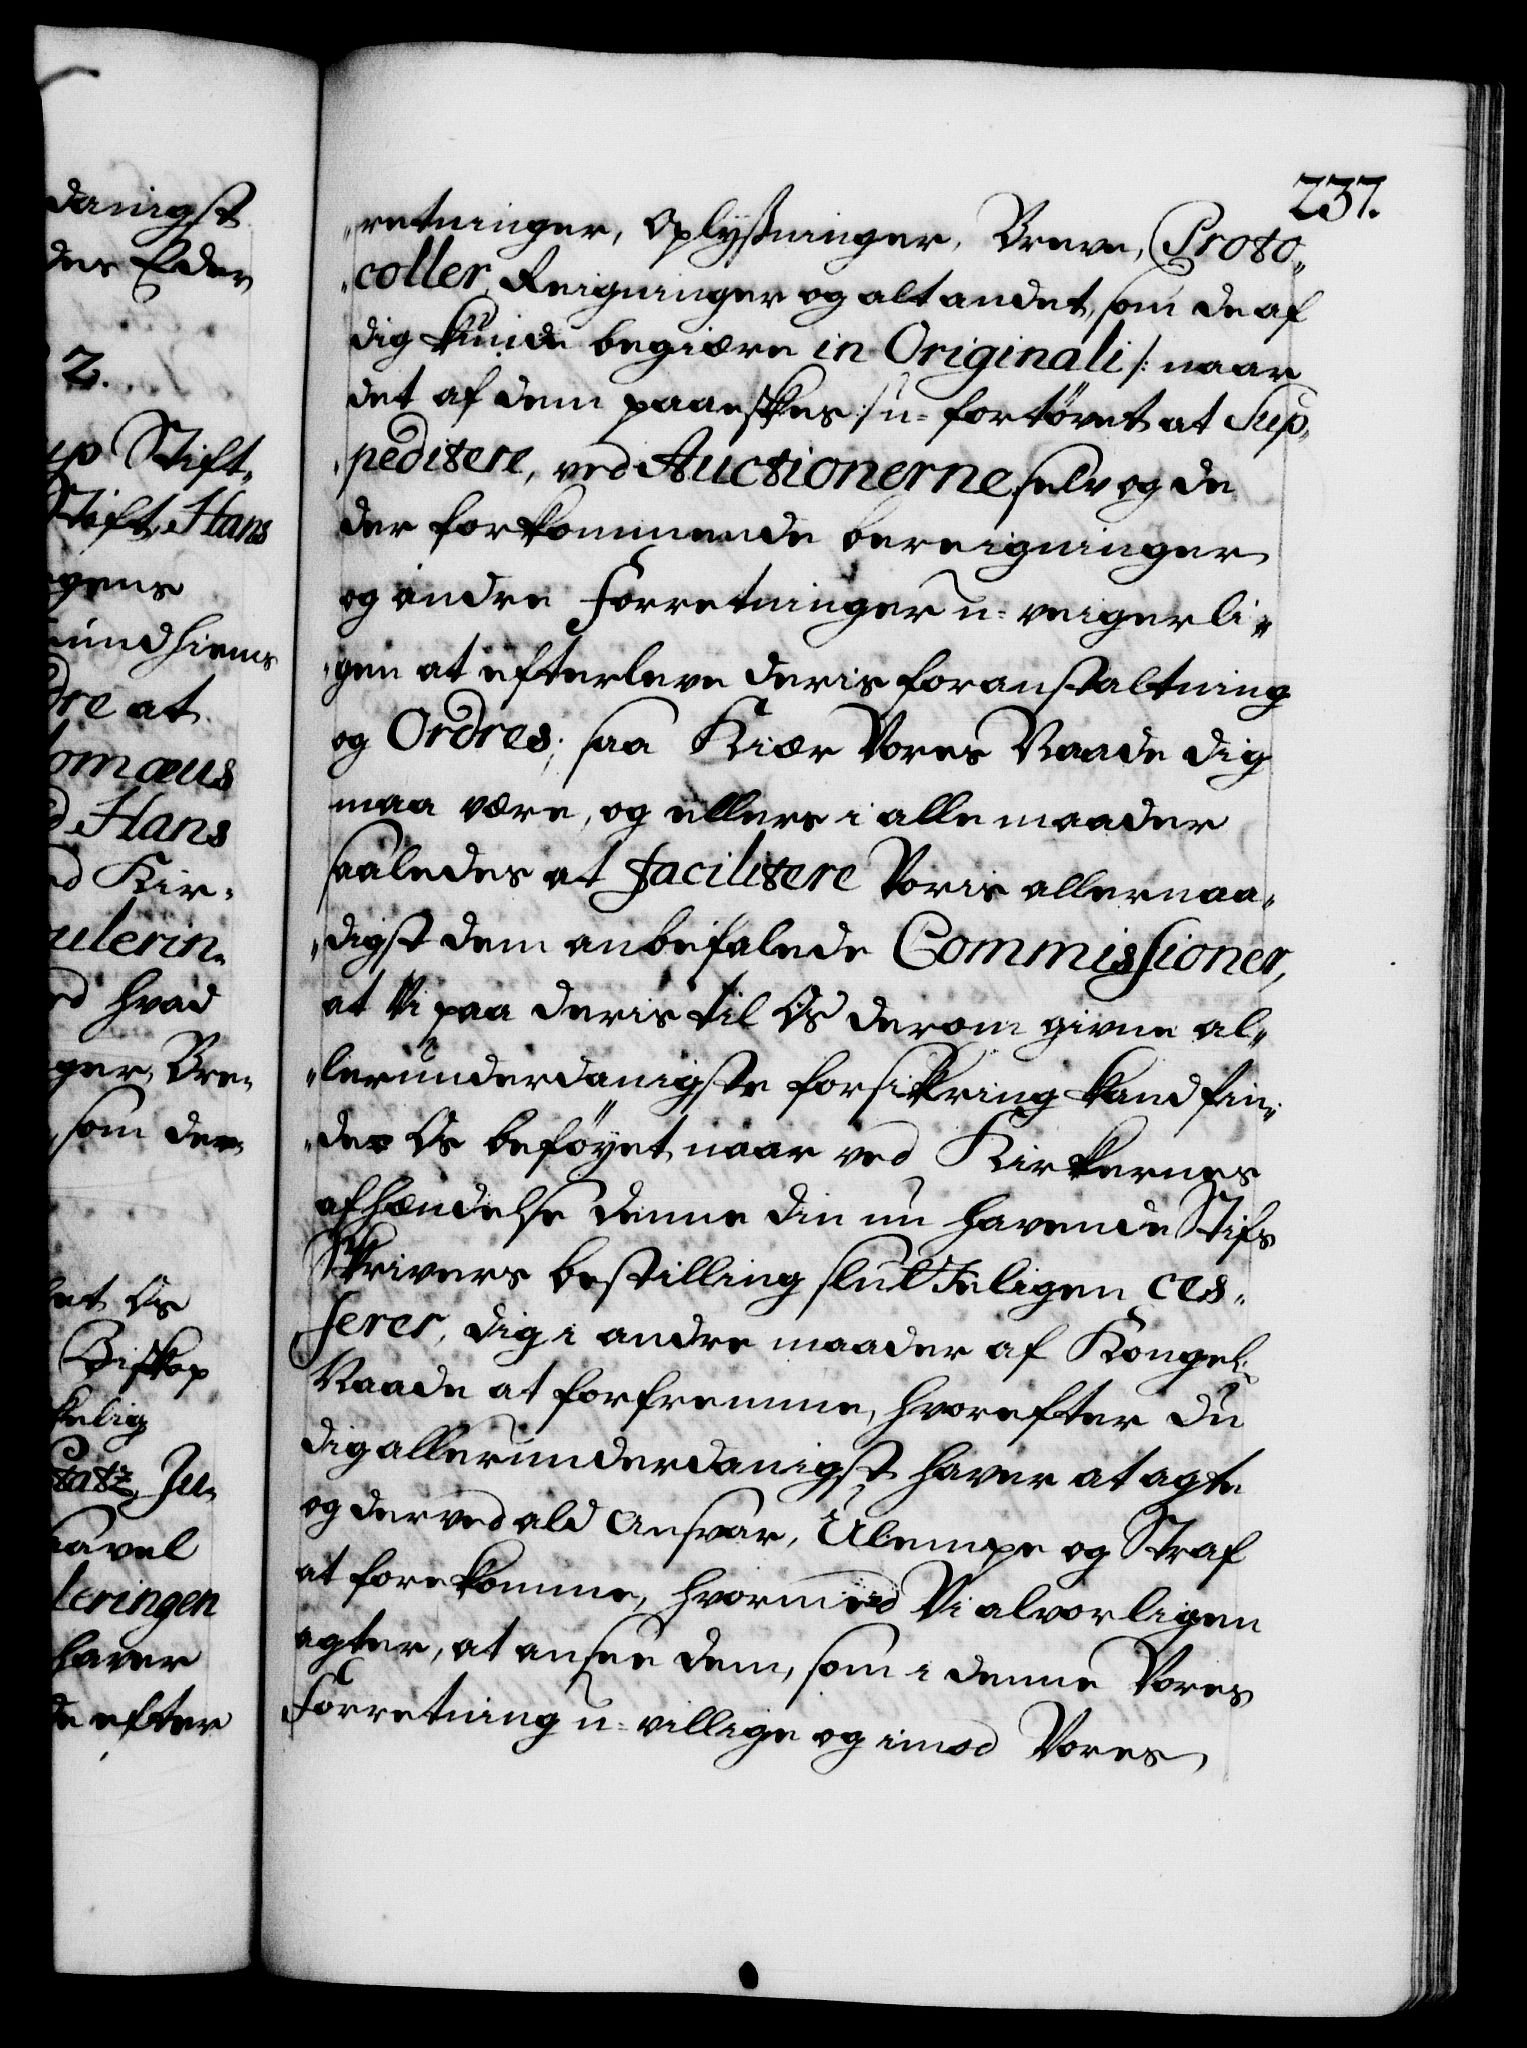 danigst
des Eder
2.
up Stift-
Stift Hans
gens
undhiems
dre at
omæus
d Hans
ed Kir-
ulerin-
ed hvad
ger, Bre-
som der-
et Os
Biskop
kelig
Stats Ju-
avel
leringen
haver
de efter
237.
„retninger, Oplysninger, Breve, Proto„
„coller, Reigninger og alt andet, som de af
dig kunde begiære in Originali /: naar
det af dem paaeskes :/ u-fortövet at Sup„
„peditere, ved Auctionerne selv og de
der forkommende bereigninger
og andre Forretninger u-veigerli„
„gen at efterleve deris foranstaltning
og Ordres; saa Kiær Vores Naade dig
maa være, og ellers i alle maader
saaledes at facilitere Voris allernaa„
„digst dem anbefalede Commissioner,
at Vi paa deris til Os derom givne al„
„lerunderdanigste forsikring kand fin„
„de Os beföyet, naar ved Kirkernes
afhændelse denne din nu havende Stifs
Skrivers bestilling slutteligen ces„
serer, dig i andre maader af Kongel:
Naade at forfremme, hvorefter du
dig allerunderdanigst haver at agte
og derved ald Ansvar, Ulempe og Straf
at forekomme, hvormed Vi alvorligen
agter, at ansee dem, som i denne Vores
Forretning u-villige og imod Vores